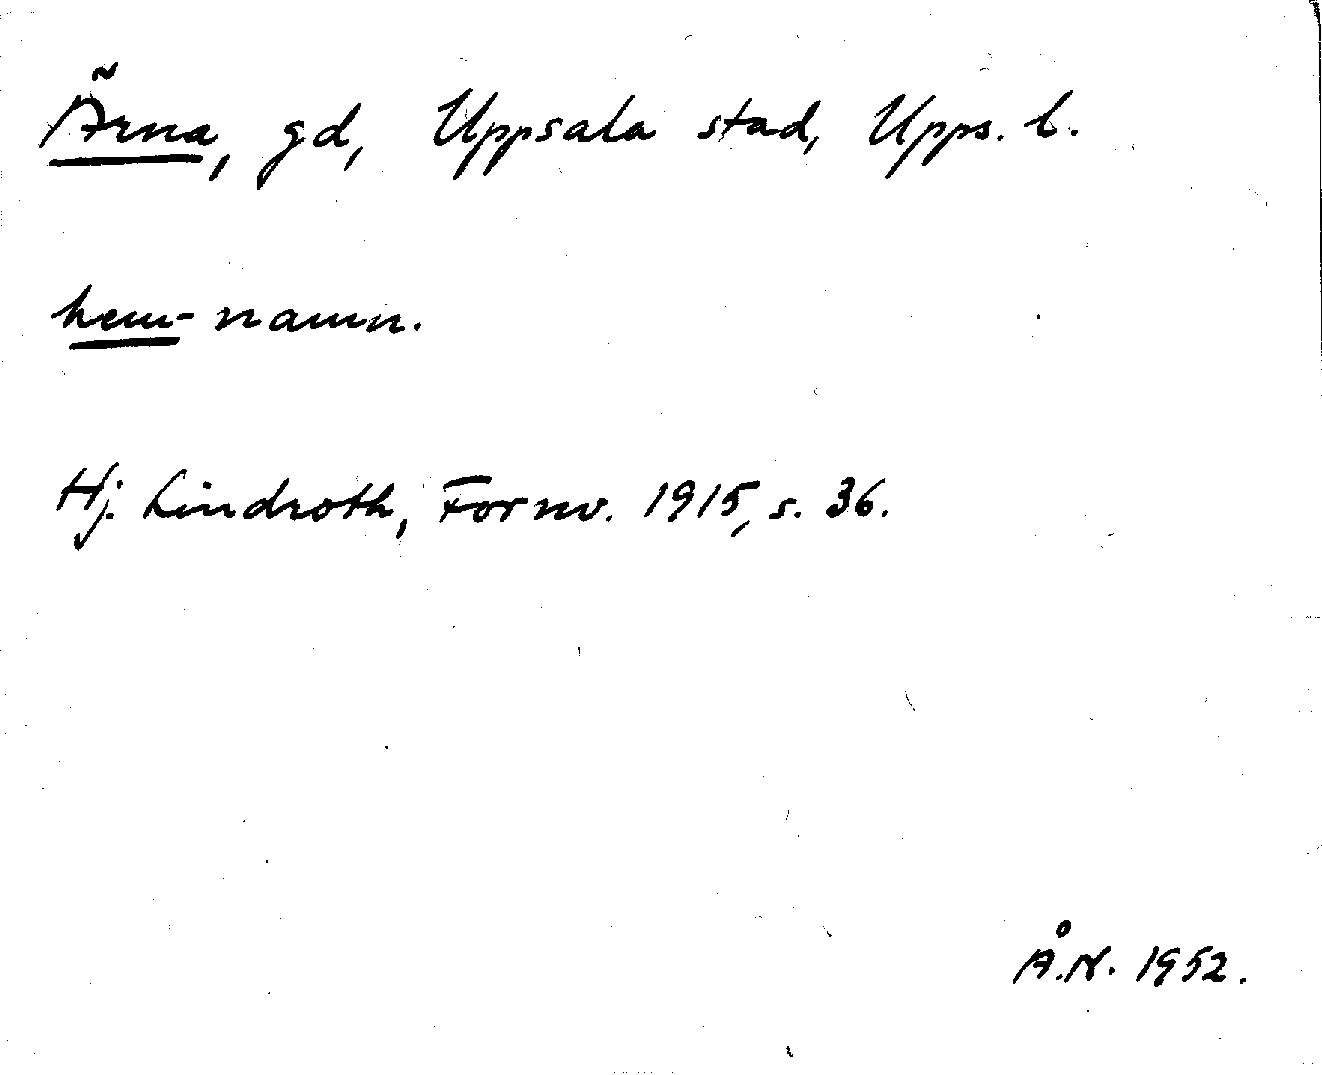 Ärna, gd, Uppsala stad, Upps. l.
hem- namn.
Hj. Lindroth, Fornv. 1915, s. 36.
Å.N. 1952.